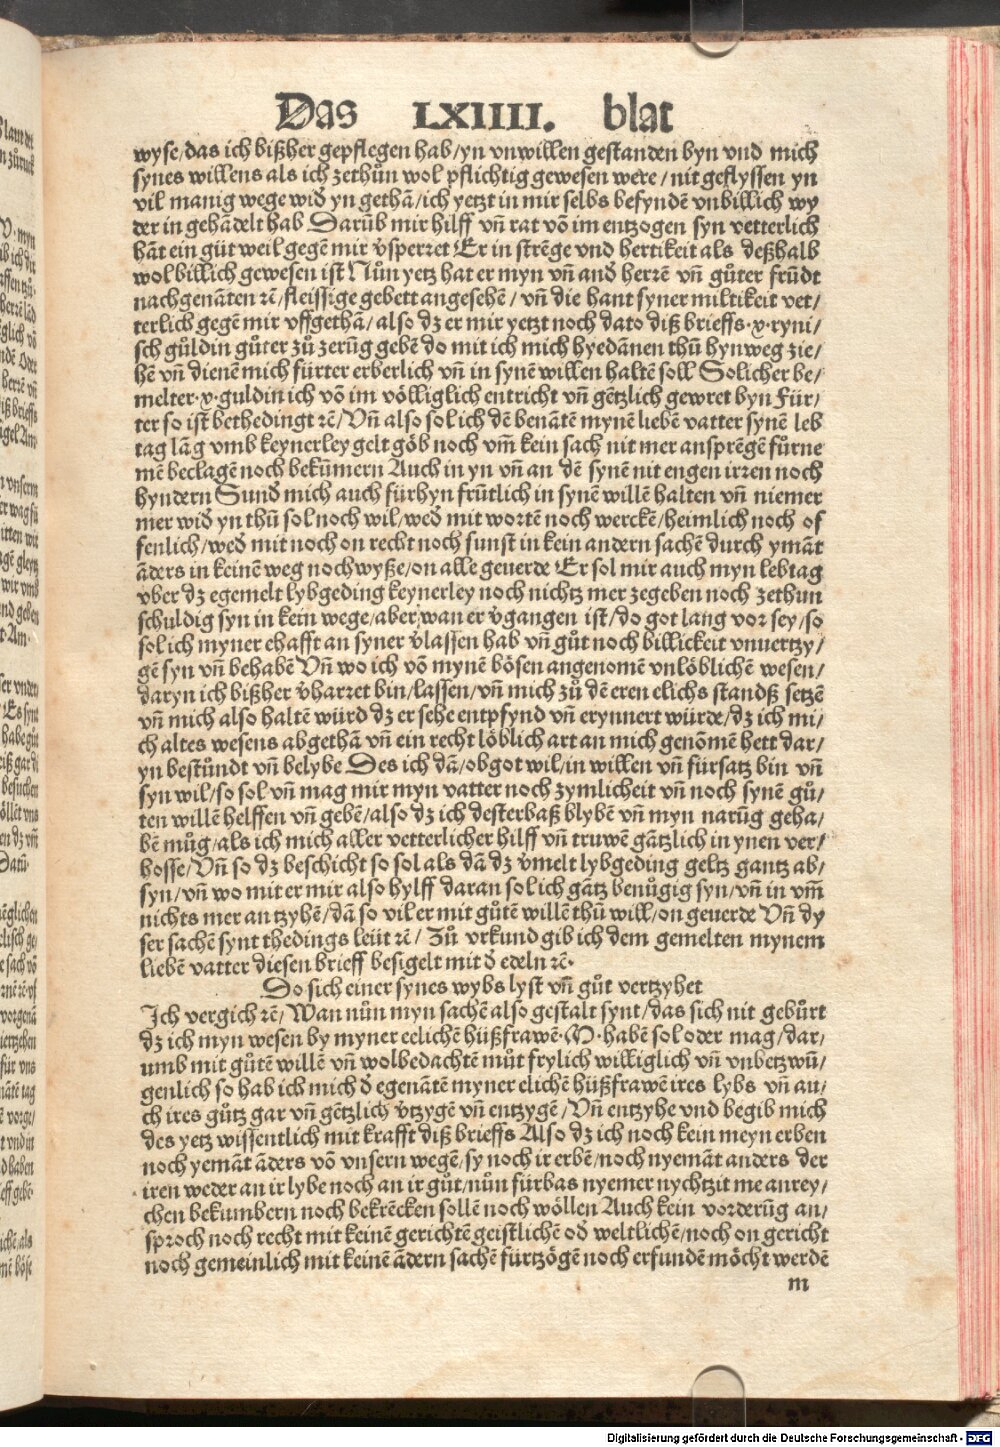 Das LXIIII. blat
wyse/das ich bißher gepflegen hab/yn vnwillen gestanden byn vnd mich
synes willens als ich zethůn wol pflichtig gewesen were/nit geflyssen yn
vil manig wege wid̕ yn gethā/ich yetzt in mir selbs befyndē vnbillich wy
der in gehādelt hab Darūb mir hilff vn̄ rat vō im entzogen syn vetterlich
hāt ein gůt weil gegē mir v̕sperret Er in strēge vnd hertikeit als deßhalb
wol billich gewesen ist Nůn yetz hat er myn vn̄ and̕ herrē vn̄ gůter frūdt
nachgenāten rē/fleissige gebett angesehē/vn̄ die hant syner miltikeit vet/
terlich gegē mir vffgethā/also dz er mir yetzt noch dato diß brieffs·x·ryni/
sch gůldin gůter zů zerūg gebē do mit ich mich hyedānen thů hynweg zie/
hē vn̄ dienē mich fürter erberlich vn̄ in synē willen haltē soll Solicher be/
melter·x·guldin ich vō im völliglich entricht vn̄ gētzlich gewret byn Für/
ter so ist bethedingt rē/Vn̄ also sol ich dē benātē mynē lieben vatter synē leb
tag lāg vmb keynerley gelt gōb noch vm̄ kein sach nit mer ansprēgē fůrne
mē beclagē noch bekūmern Auch in yn vn̄ an dē synē nit engen irren noch
hyndern Sund̕ mich auch fürhyn frūtlich in synē willē halten vn̄ niemer
mer wid̕ yn thů sol noch wil/wed̕ mit wortē noch werckē/heimlich noch of
fenlich/wed̕ mit noch on recht noch sunst in kein andern sachē durch ymāt
āders in keinē weg noch wyße/on alle geuerde Er sol mir auch myn lebtag
vber dz egemelt lybgeding keynerley noch nichtz mer zegeben noch zethun
schuldig syn in kein wege/aber wan er v̕gangen ist/do got lang vor sey/so
sol ich myner ehafft an syner v̕lassen hab vn̄ gůt noch billickeit vnuertzy/
gē syn vn̄ behabē Vn̄ wo ich vō mynē bösen angenomē vnlöblichē wesen/
daryn ich bißher v̕harret bin/lassen/vn̄ mich zů dē eren elichs standß setzē
vn̄ mich also haltē würd dz er sehe entpfynd vn̄ erynnert würde/dz ich mi/
ch altes wesens abgethā vn̄ ein recht löblich art an mich genōmē hett dar/
yn bestůndt vn̄ belybe Des ich dā/ob got wil/in willen vn̄ fürsatz bin vn̄
syn wil/so sol vn̄ mag mir myn vatter noch zymlicheit vn̄ noch synē gů/
ten willē helffen vn̄ gebē/also dz ich desterbaß blybē vn̄ myn narūg geha/
bē můg/als ich mich aller vetterlicher hilff vn̄ truwē gātzlich in ynen ver/
hosse/Vn̄ so dz beschicht so sol als dā dz v̕melt lybgeding geltz gantz ab/
syn/vn̄ wo mit er mir also hylff daran sol ich gātz benůgig syn/vn̄ in vm̄
nichts mer an tzyhē/dā so vil er mit gůtē willē thů will/on geuerde Vn̄ dy
ser sachē synt thedings leüt rē/Zů vrkund gib ich dem gemelten mynem
liebē vatter diesen brieff besigelt mit d̕ edeln rē·
So sich einer synes wybs lyst vn̄ gůt vertzyhet
Ich vergich rē/Wan nůn myn sachē also gestalt synt/das sich nit gebůrt
dz ich myn wesen by myner eelichē hüßfrawē·M·habē sol oder mag/dar/
umb mit gůtē willē vn̄ wolbedachtē můt frylich williglich vn̄ vnbetzwū/
genlich so hab ich mich d̕ egenātē myner elichē hüßfrawē ires lybs vn̄ au/
ch ires gůtz gar vn̄ gētzlich v̕tzygē vn̄ entzygē/Vn̄ entzyhe vnd begib mich
des yetz wissentlich mit krafft diß brieffs Also dz ich noch kein meyn erben
noch yemāt āders vō vnsern wegē/sy noch ir erbē/noch nyemāt anders der
iren weder an ir lybe noch an ir gůt/nůn fürbas nyemer nychtzit me anrey/
chen bekumbern noch bekrēcken sollē noch wöllen Auch kein vorderūg an/
sproch noch recht mit keinē gerichtē geistlichē od̕ weltlichē/noch on gericht
noch gemeinlich mit keinē ādern sachē fürtzögē noch erfundē möcht werdē
m
Digitalisierung gefördert durch die Deutsche Forschungsgemeinschaft - DFG